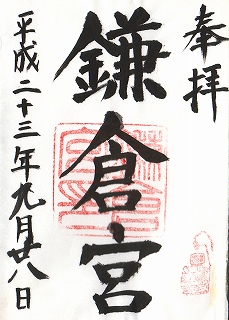 奉拝
鎌倉宮
平成二十三年九月廿八日